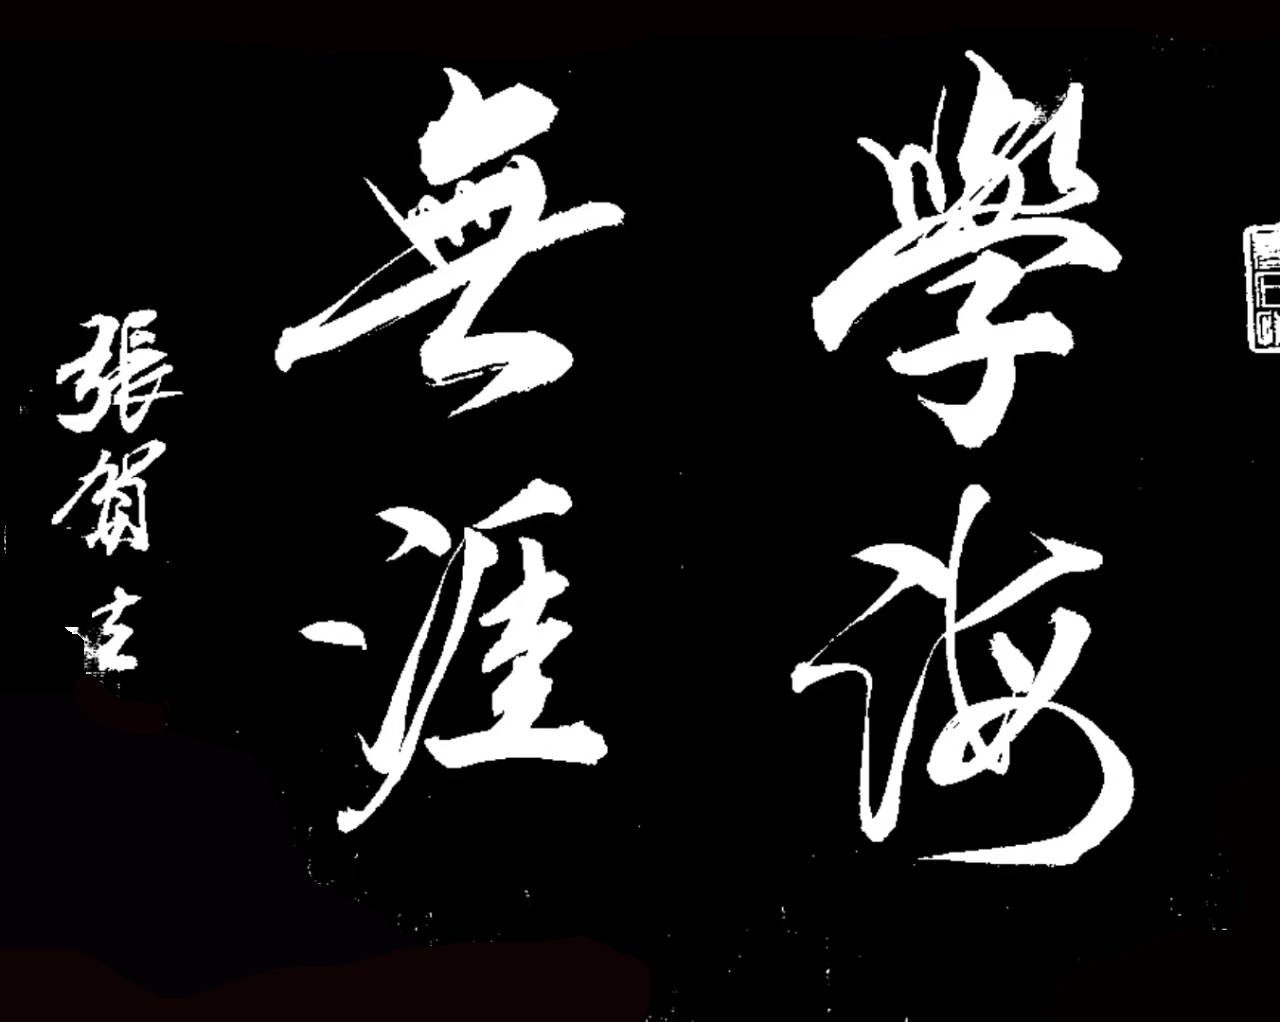 學海
無涯
張賀